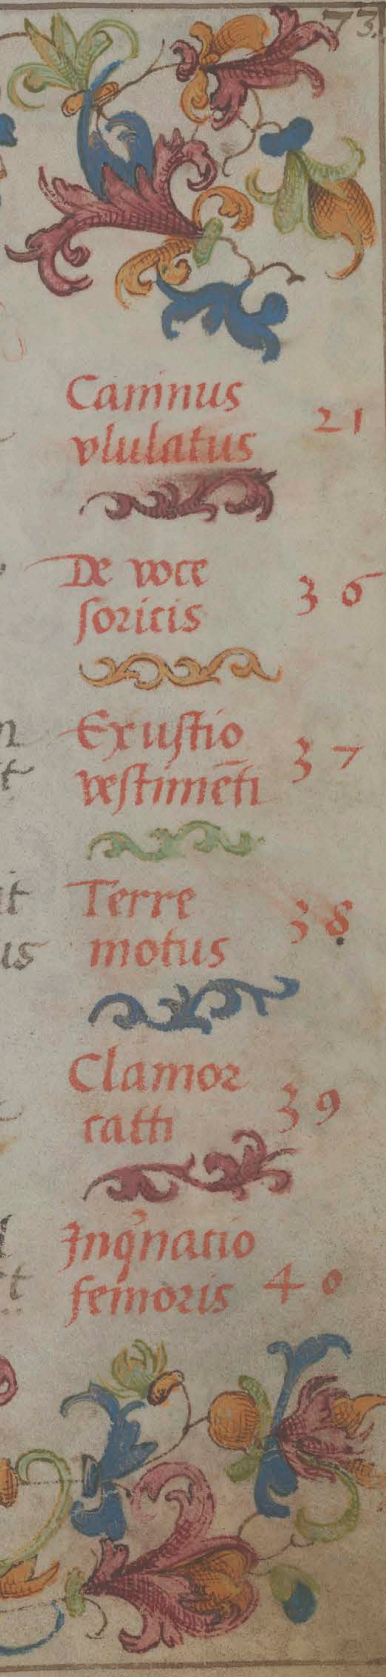 73.
Caninus
vlulatus 21
De voce
soricis 36
Exustio
vestimēti 37
Terre
motus 38
Clamor
catti 39
Inq̃natio
femoris 40